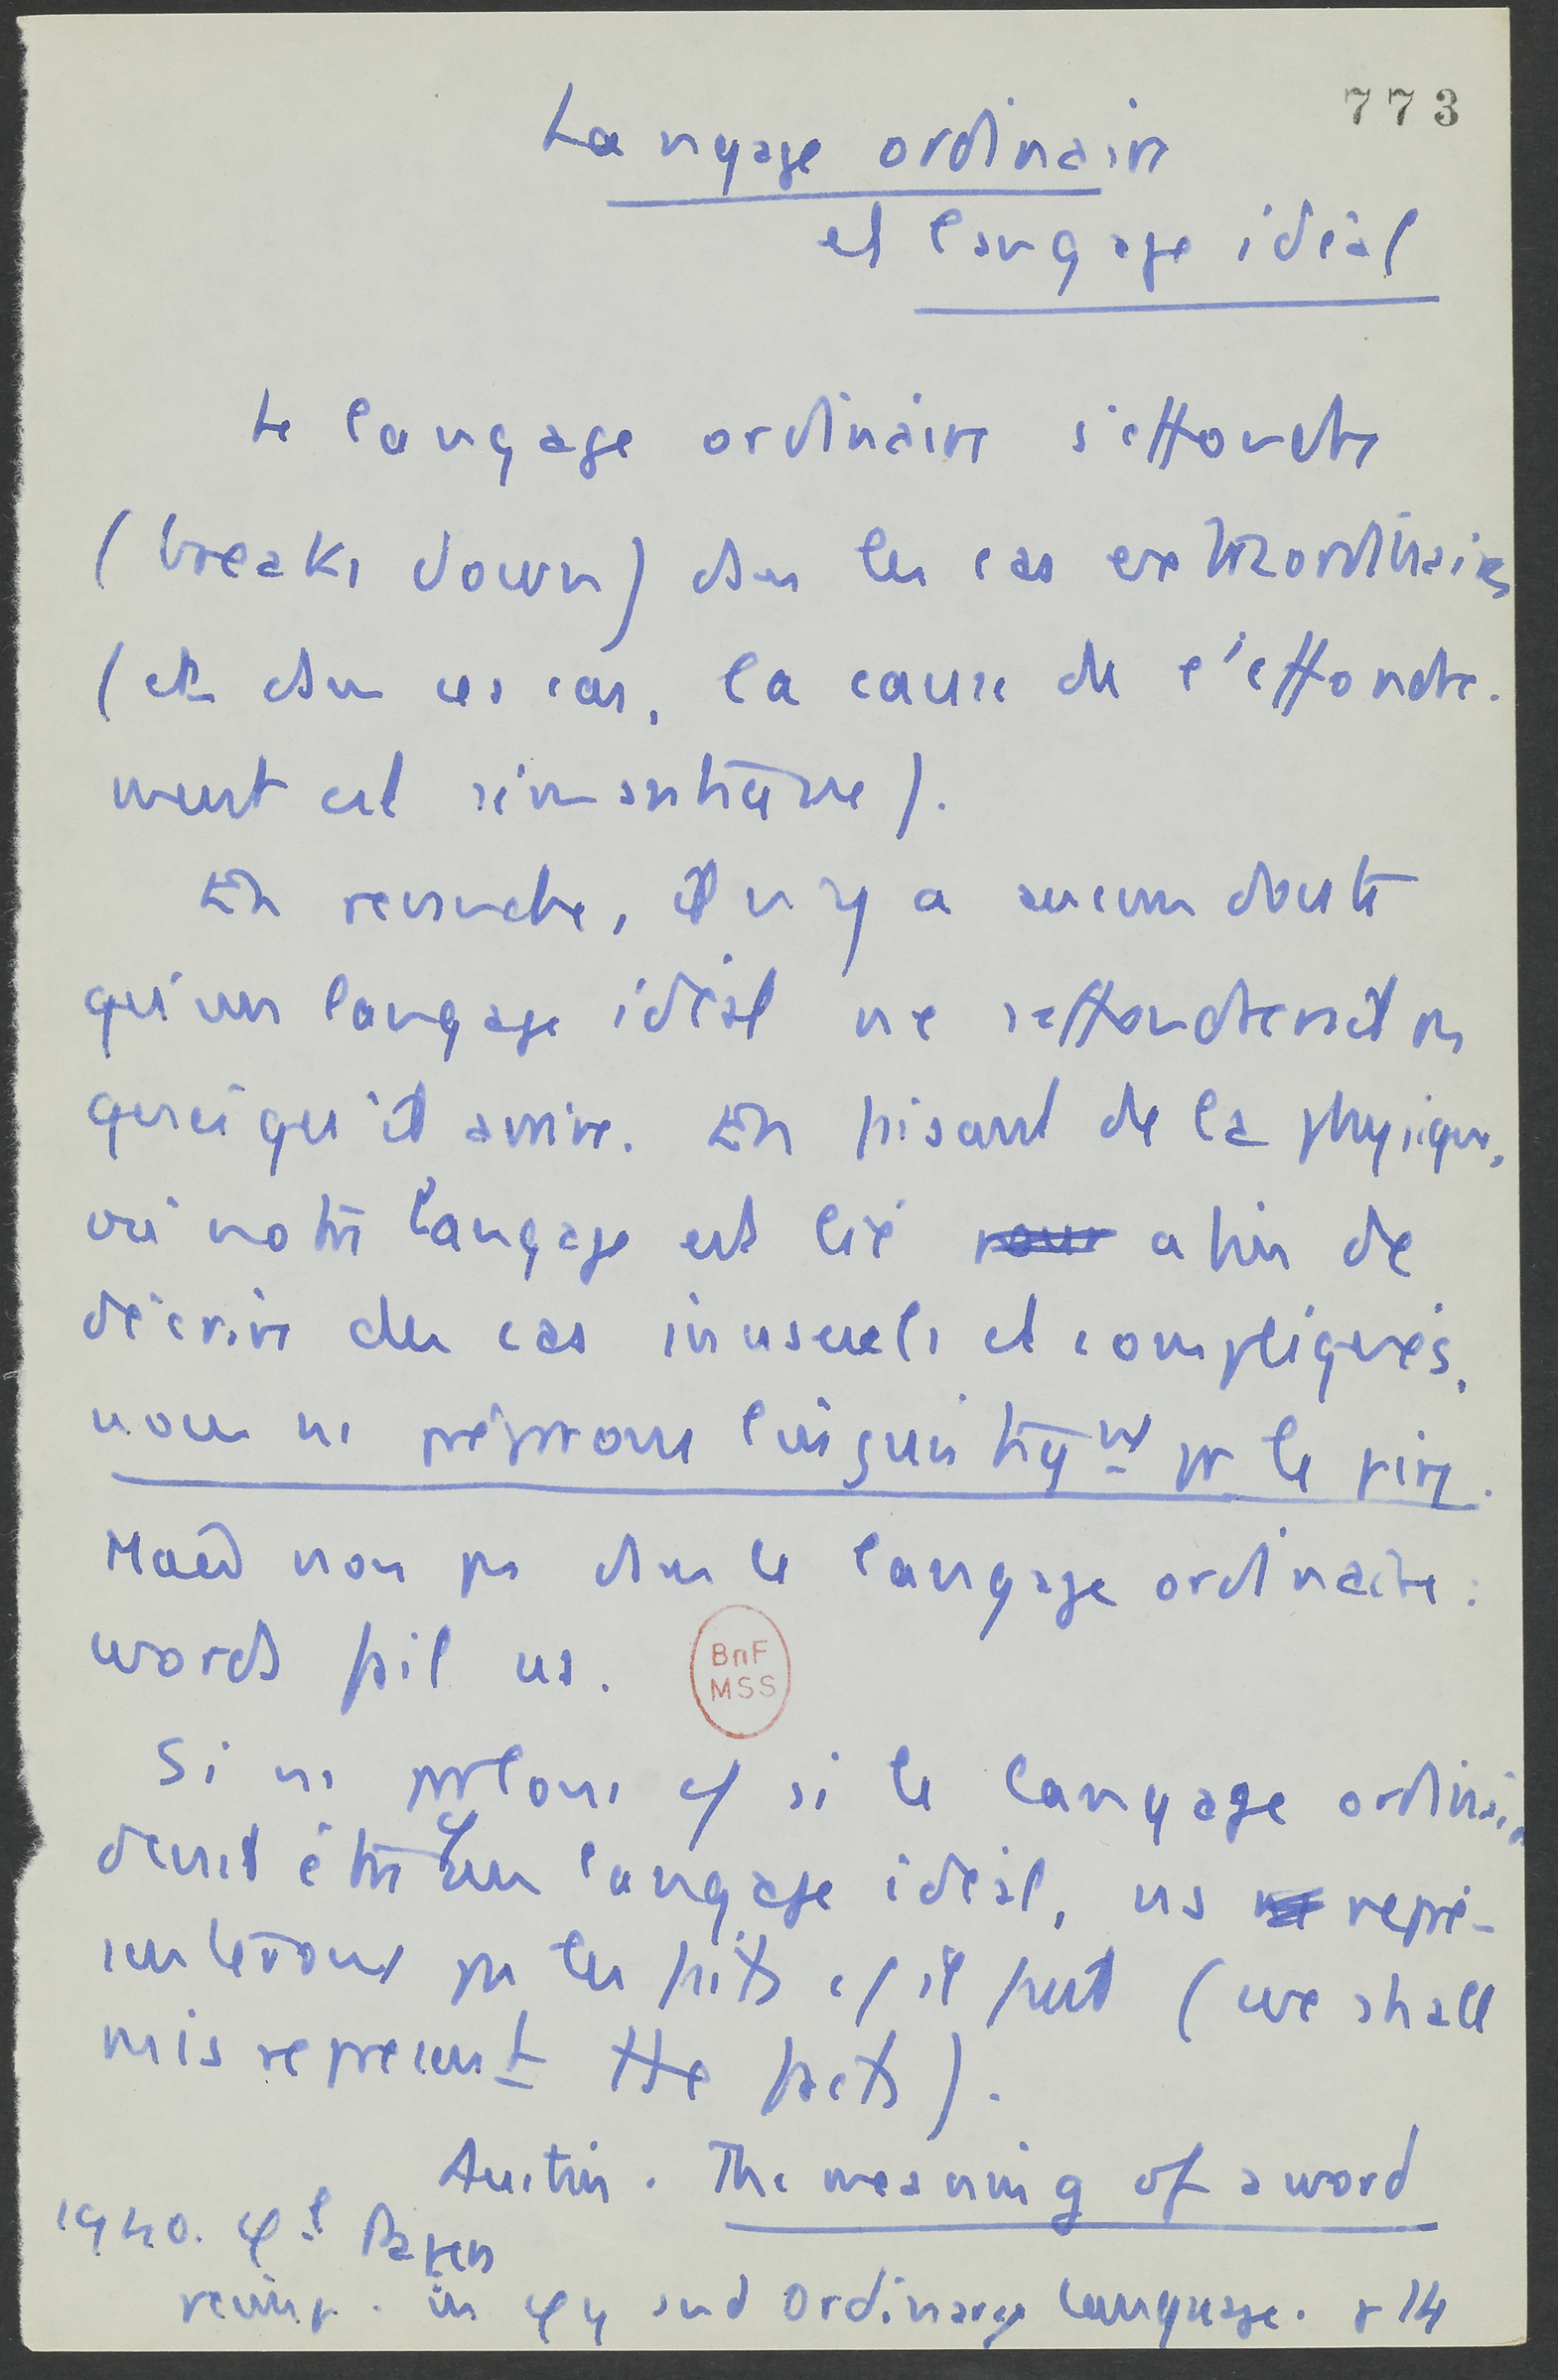 773
Langage ordinaire
et langage idéal
Le langage ordinaire s'effondre
(breaks down) dans les cas extraordinaires
(et dans ces cas, la cause de l'effondre-
ment est sémantique).
En revanche, il n'y a aucun doute
qu'un langage idéal ne s'effondrerait pas
quoi qu'il arrive. En faisant de la physique,
où notre langage est lié afin de
décrire des cas inusuels et compliqués,
nous ns préparons linguistiqt pr le pire.
Mais non pas dans le langage ordinaire :
words fail us.
BnF
MSS
Si ns parlons c/ si le langage ordinaire
devait être c/ un langage idéal, ns repré-
senterons pas les faits c/ il faut (we shall
misrepresent the facts).
Austin. The meaning of a word
1940. φl Papers
réimp. in φy and Ordinary Language. p 14